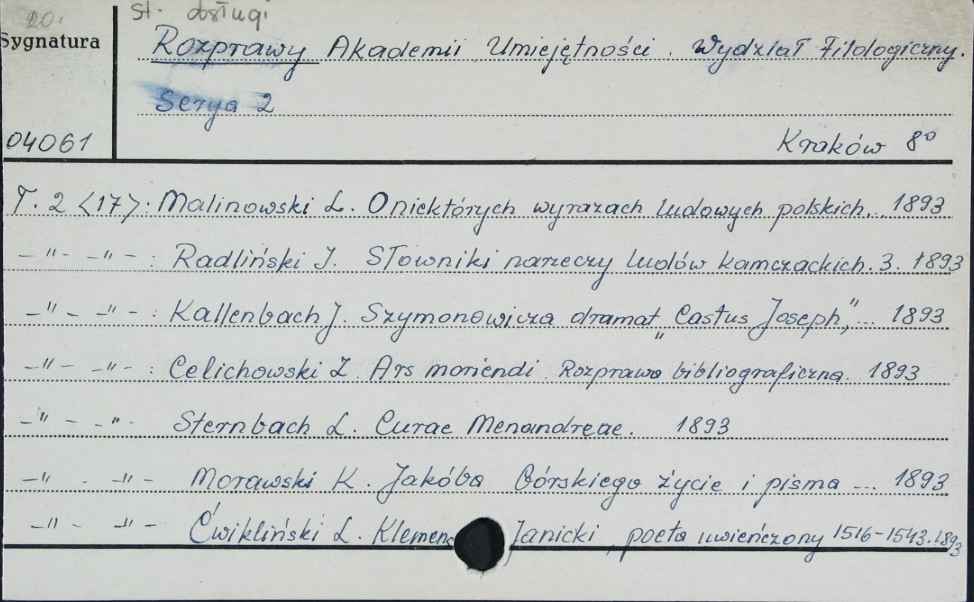 20. st. obsługi
Sygnatura
Rozprawy Akademii Umiejętności. Wydział Filologiczny.
Serya 2
04061
Kraków 8°
T. 2 <17>: Malinowski L. O niektórych wyrazach ludowych polskich... 1893
-"- -"- : Radliński J. Słowniki narzeczy ludów kamczackich. 3. 1893
-"- -"- : Kallenbach J. Szymonowicza dramat „Castus Joseph"... 1893
-"- -"- : Celichowski Z. Ars moriendi. Rozprawa bibliograficzna. 1893
-"- -"- Sternbach L. Curae Menandreae. 1893
-"- -"- Morawski K. Jakóba Górskiego życie i pisma ... 1893
-"- -"- Ćwikliński L. Klemens Janicki, poeta uwieńczony 1516-1543. 1893